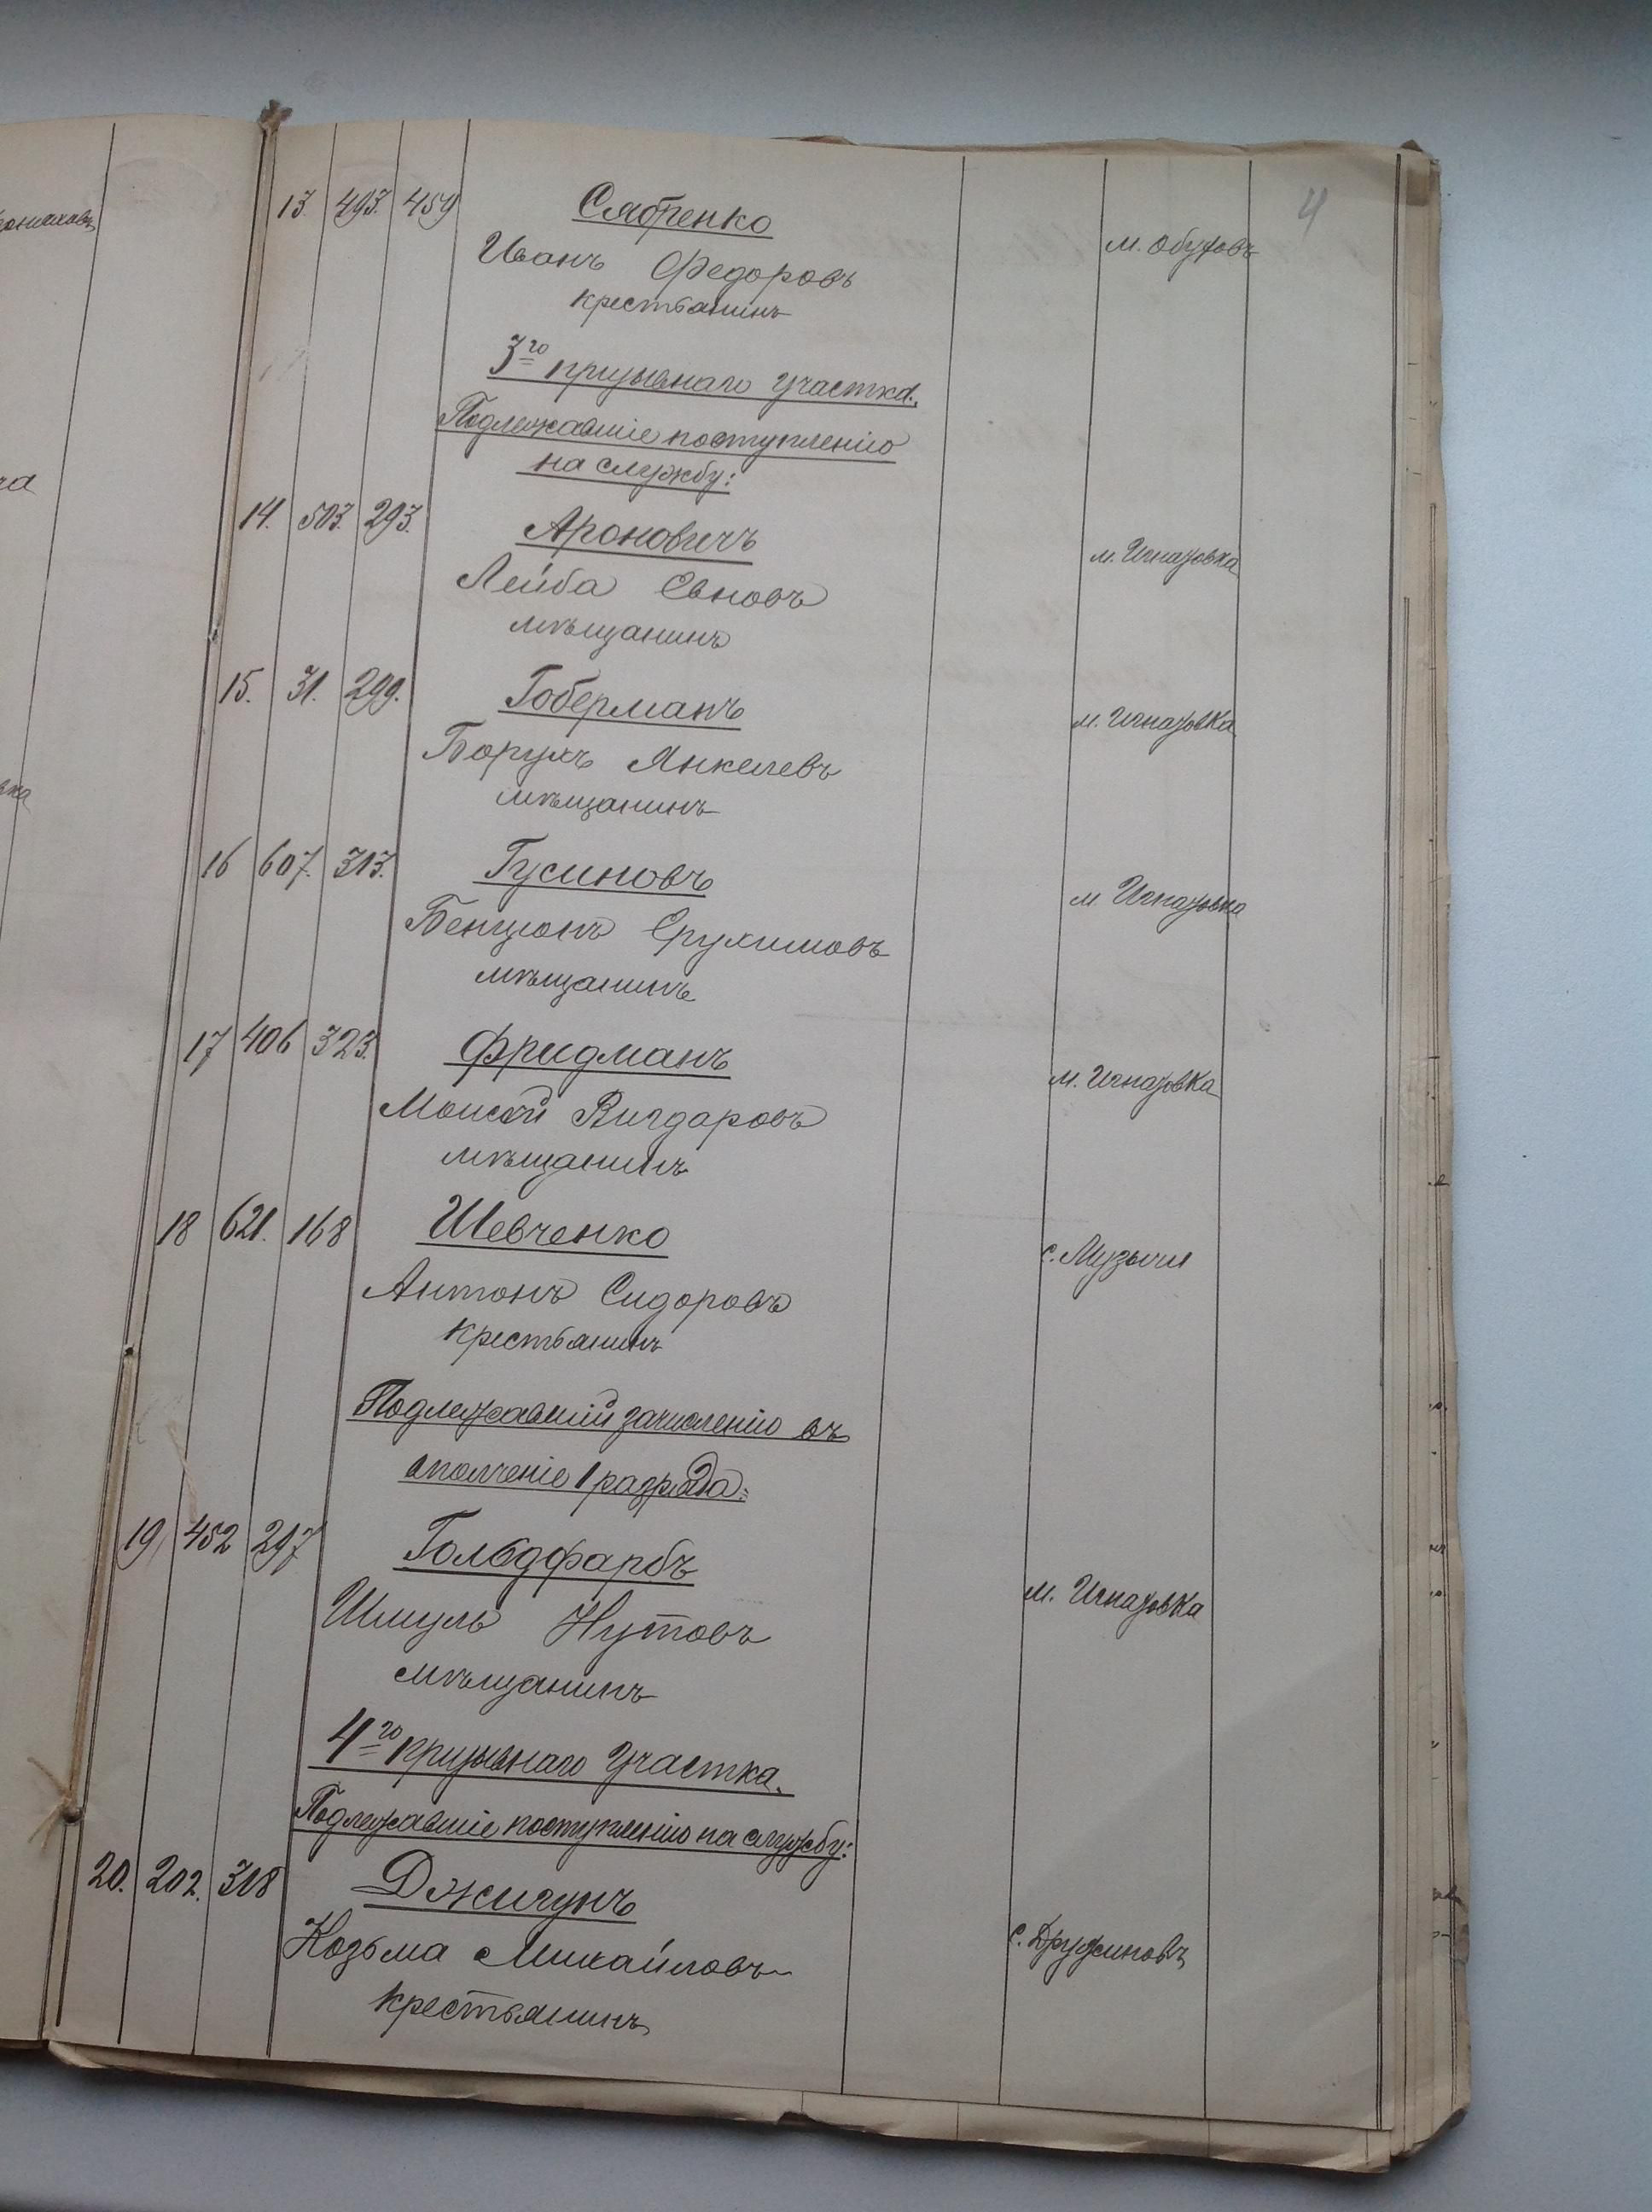 4
13. 493. 459 Сябренко м. Обуховъ
Иванъ Федоровъ
крестьянинъ
3го призывнаго участка.
Подлежавшіе поступленію
на службу:
14. 503. 293. Ароновичъ м. Игнатовка
Лейба Евновъ
мѣщанинъ
15. 31. 299. Гоберманъ м. Игнатовка
Борухъ Янкелевъ
мѣщанинъ
16 607. 313. Гусиновъ м. Игнатовка
Бенціонъ Срухимовъ
мѣщанинъ
17 406 323. Фридманъ м. Игнатовка
Моисей Вигдаровъ
мѣщанинъ
18 621. 168 Шевченко с. Музычи
Антонъ Сидоровъ
крестьянинъ
Подлежавшій зачисленію въ
ополченіе 1 разряда:
19 452 297 Гольдфарбъ м. Игнатовка
Шмуль Нутовъ
мѣщанинъ
4го призывнаго участка.
Подлежавшіе поступленію на службу:
20. 202. 318 Джигунъ с. Дружиновъ
Козьма Михайловъ
крестьянинъ